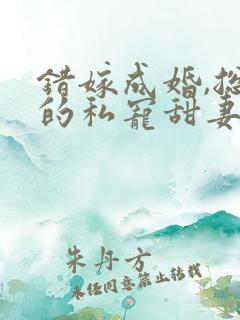 错嫁成婚,总
的私宠甜妻
朱丹方
未经同意禁止转载